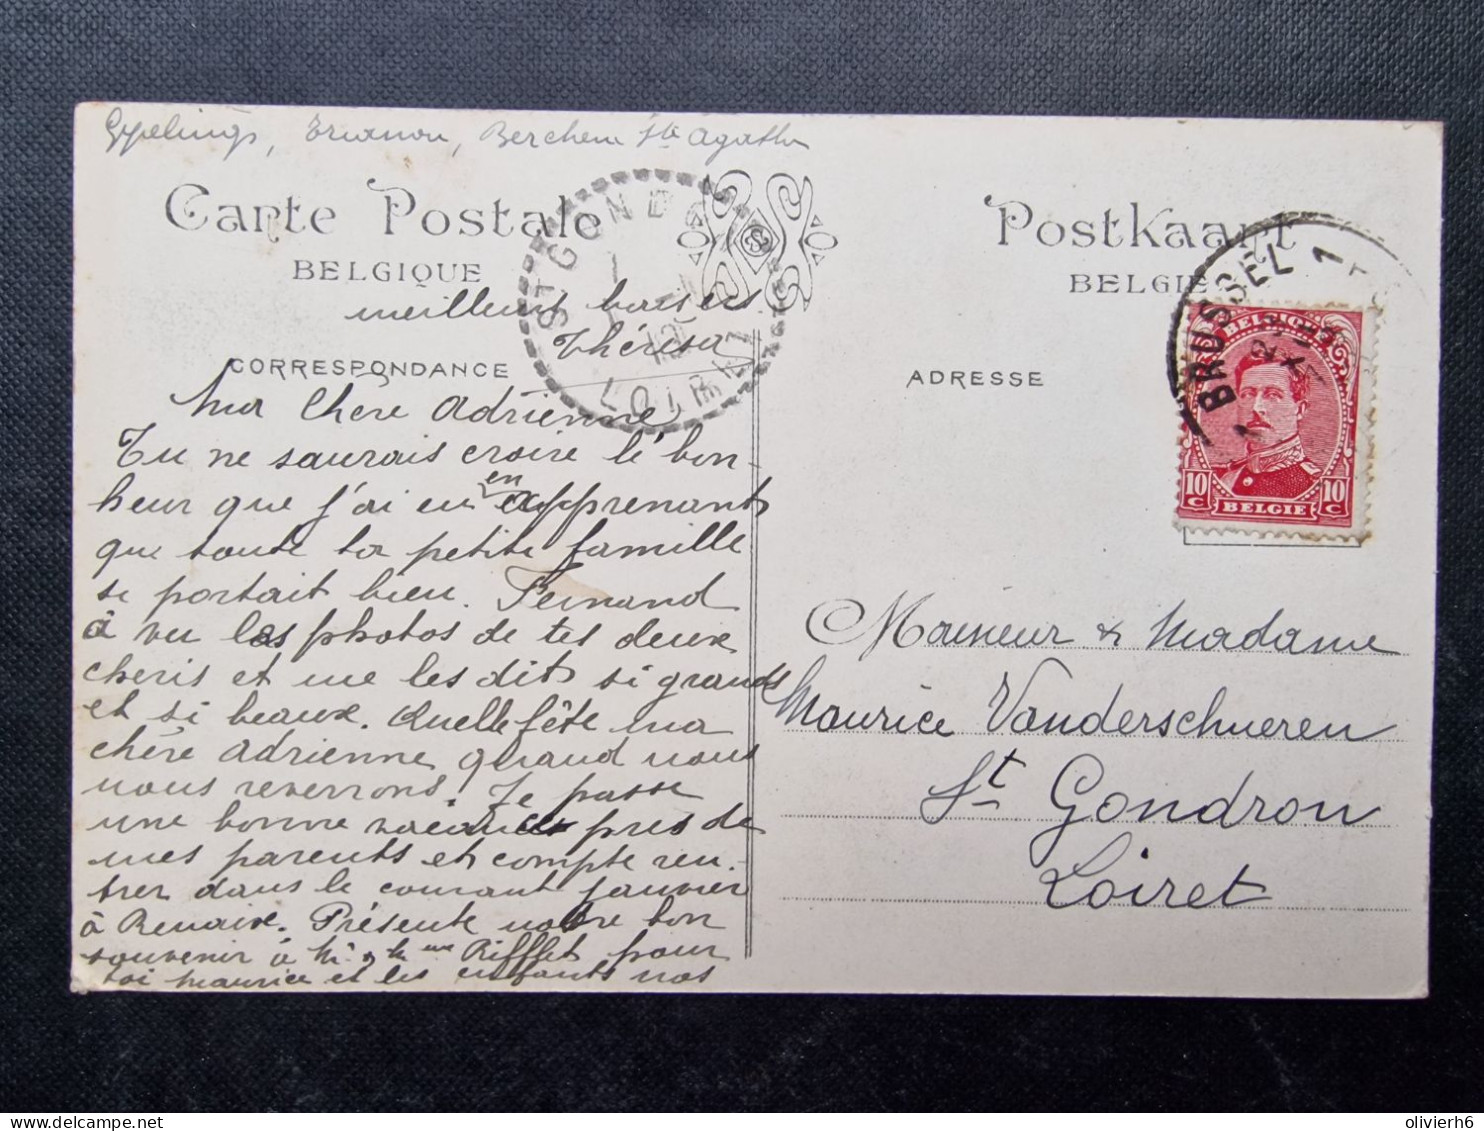 Trianon, Berchem Ste Agathe
Carte Postale
BELGIQUE
Postkaart
BELGIE
ST GONDRON
LOIRET
BRUSSEL 1
meilleurs baisers
Thérésa
CORRESPONDANCE
ADRESSE
Ma Chère Adrienne,
Tu ne saurais croire le bon-
heur que j'ai eu en apprenant
que toute ta petite famille
se portait bien. Fernand
à vu les photos de tes deux
cheris et me les dits si grands
et si beaux. Quelle fête ma
chère Adrienne quand nous
nous reverrons. Je passe
une bonne vacances près de
mes parents et compte ren-
trer dans le courant janvier
à Renaix. Présente notre bon
souvenir à Mr & Mme Rifflet pour
toi Maurice et les enfants nos
BELGIQUE
10 C
10 C
BELGIE
Monsieur & Madame
Maurice Vanderschueren
St Gondron
Loiret
olivierh6